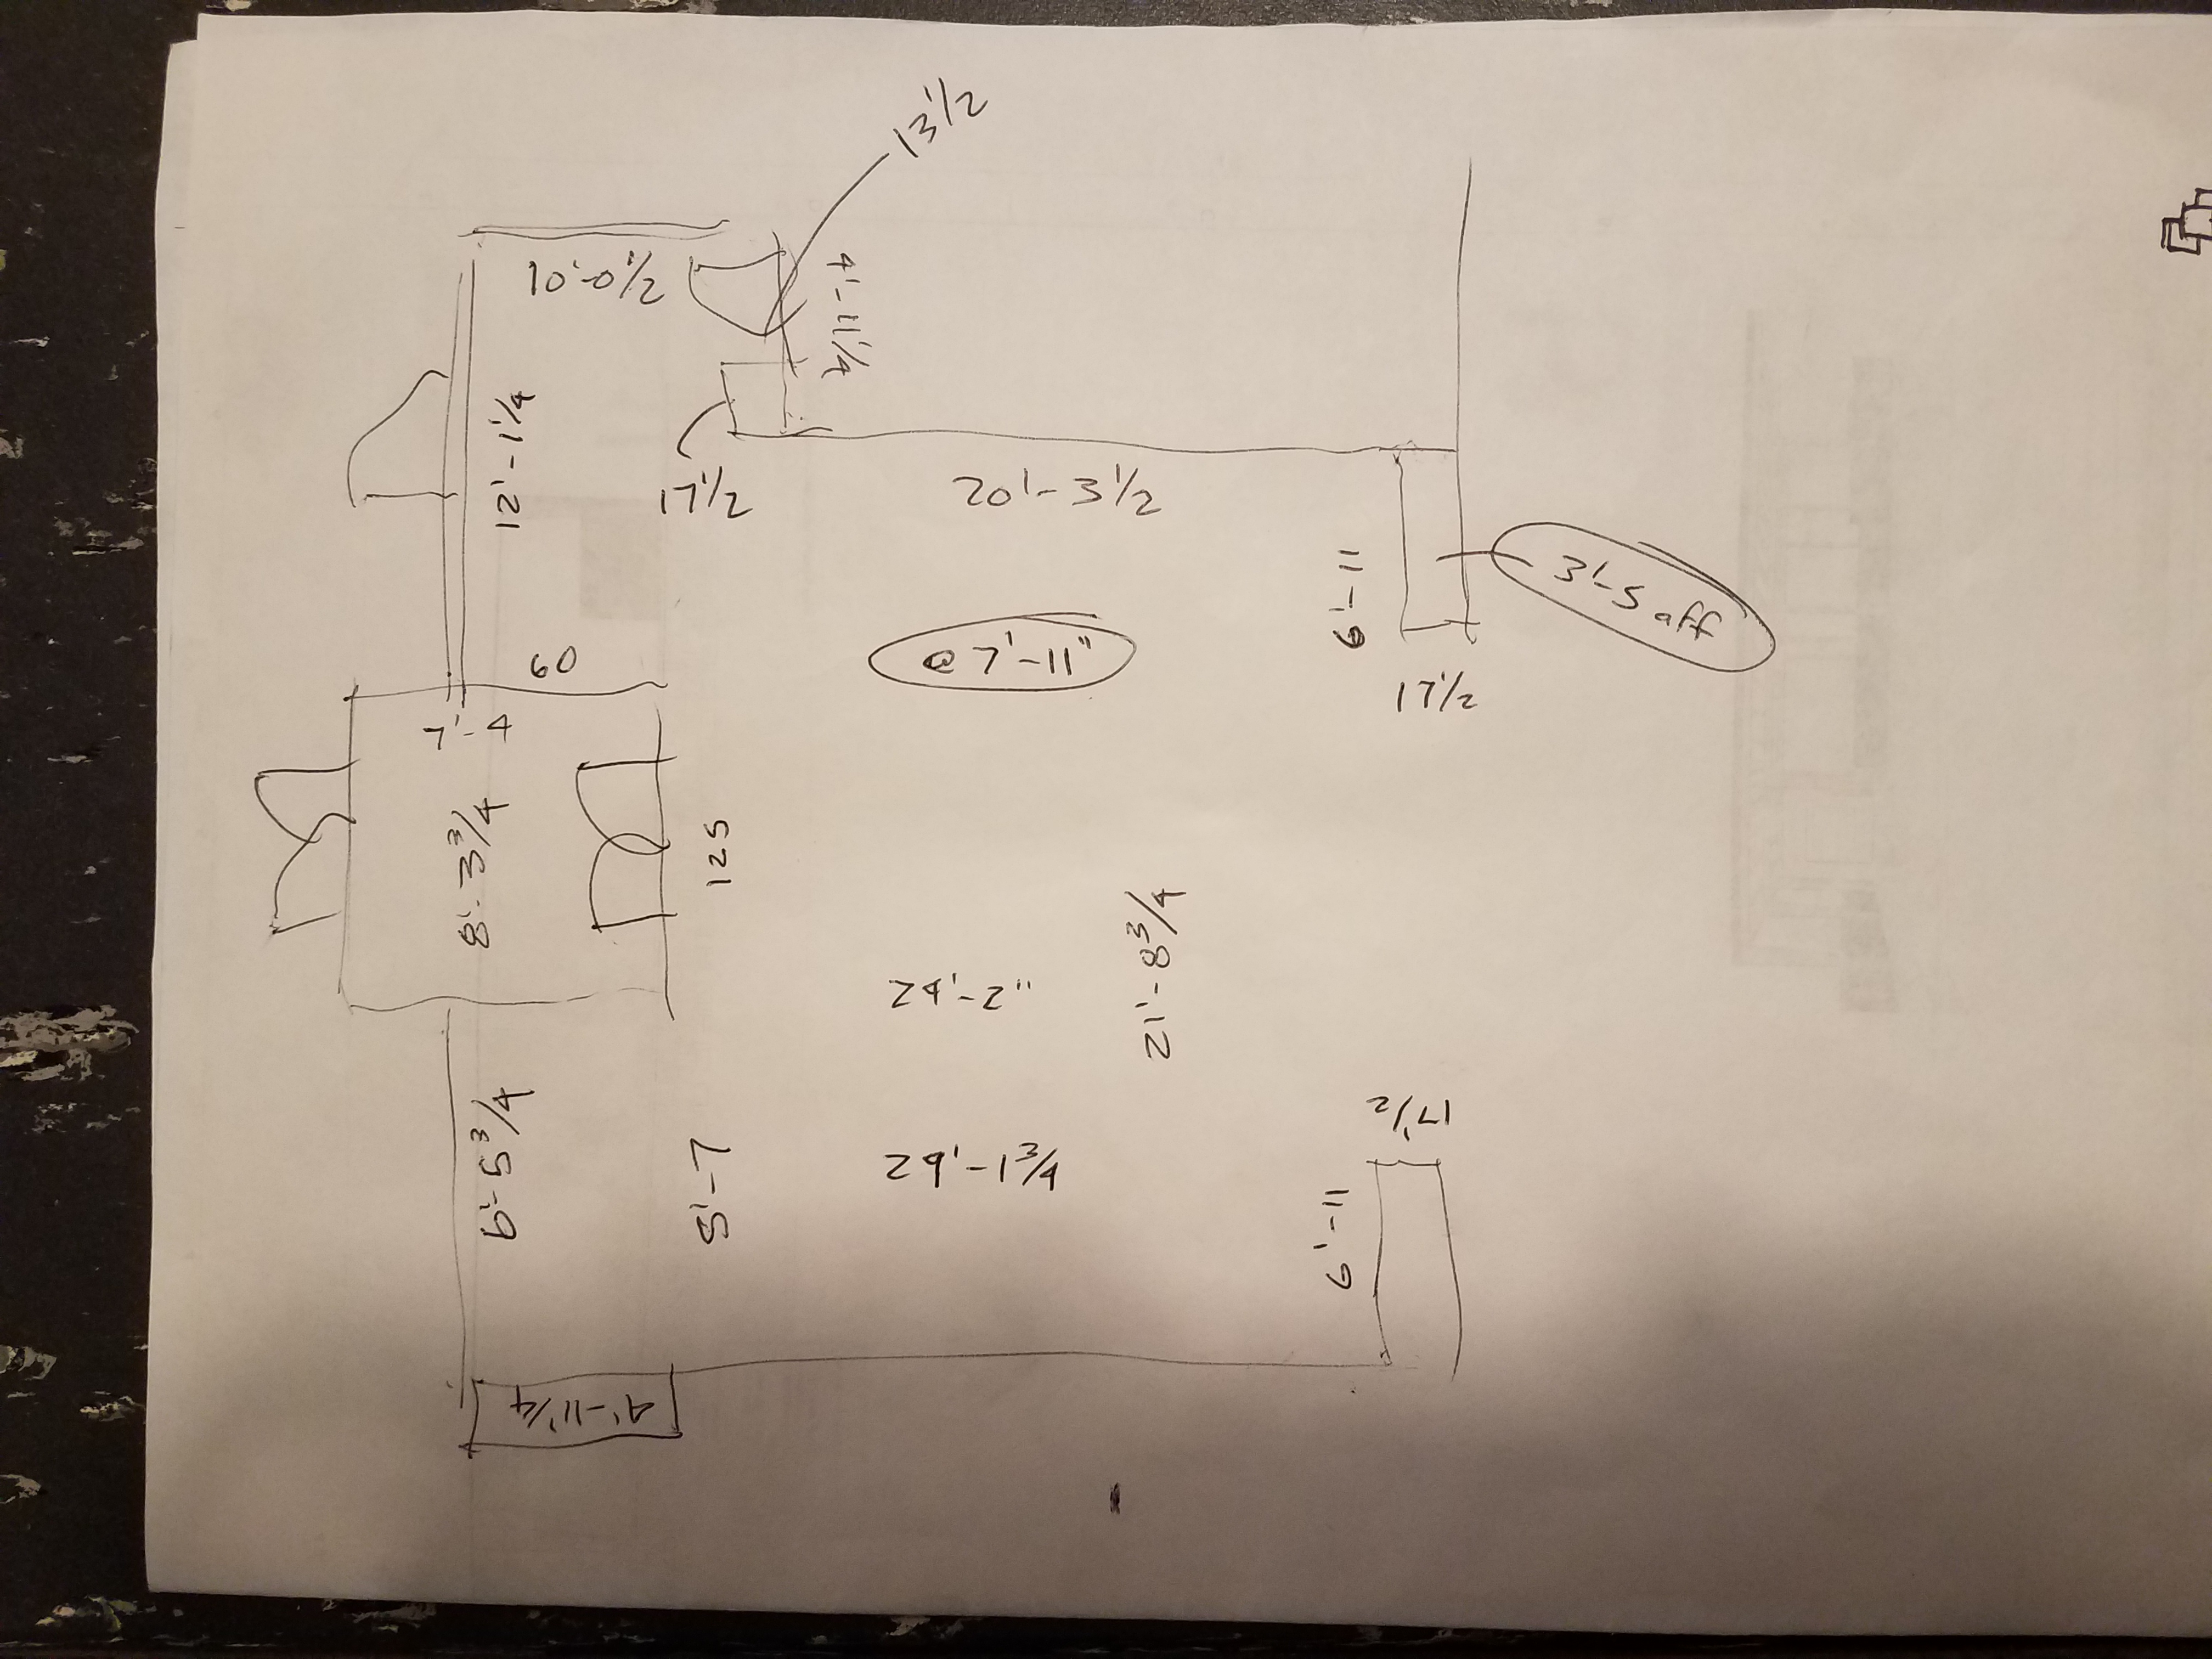 4'-11 1/4
6'-5 3/4
5'-7
6'-11
24'-1 3/4
17 1/2
24'-2"
21'-8 3/4
8'-3 3/4
125
7'-4
60
17 1/2
@ 7'-11"
6'-11
3'-5 aff
20'-3 1/2
17 1/2
12'-1 1/4
4'-11 1/4
10'-0 1/2
13 1/2